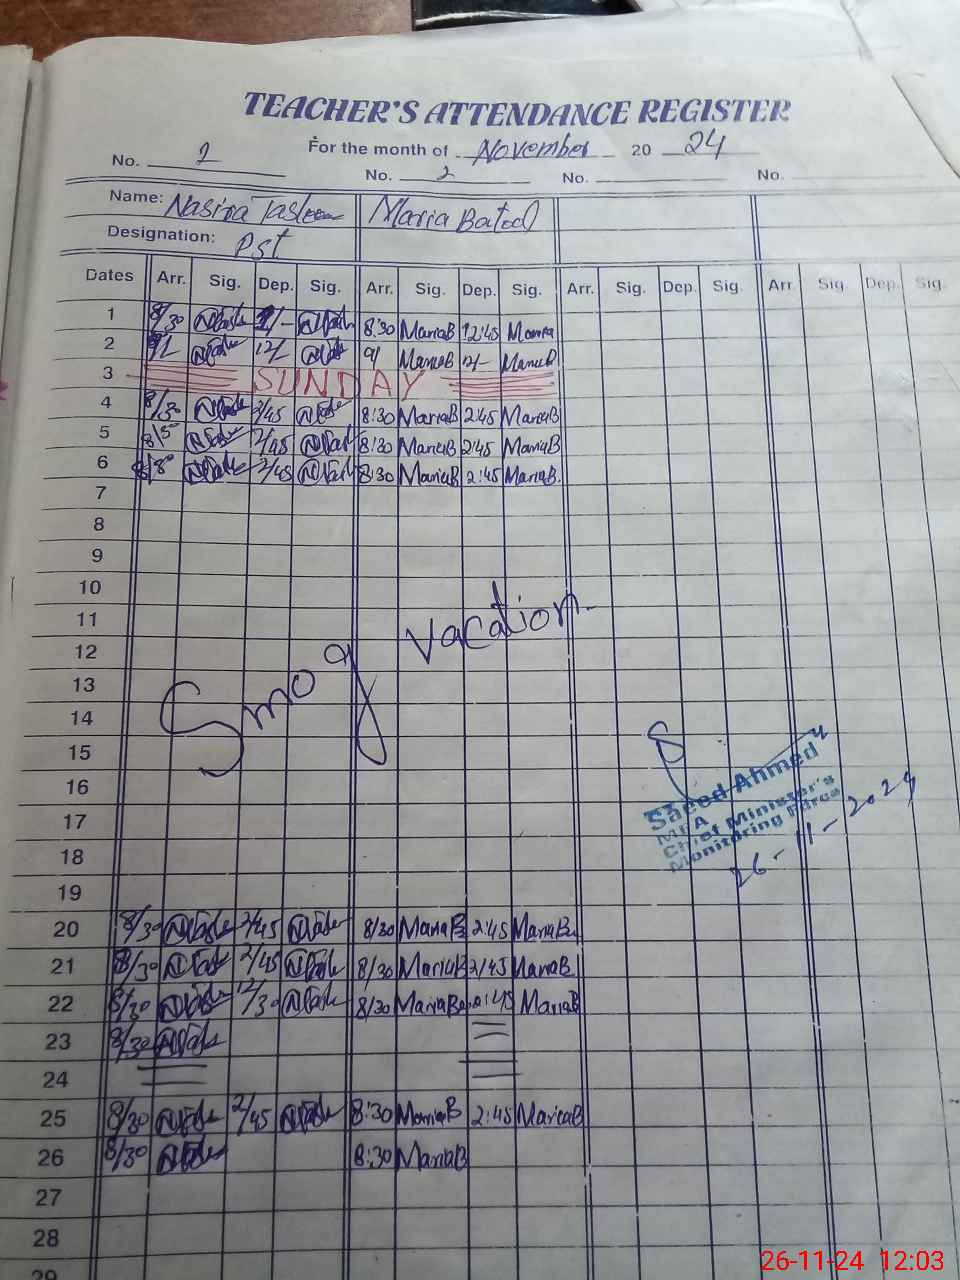 TEACHER'S ATTENDANCE REGISTER
For the month of November 20 24
No. 1 No. 2 No. No.
Name: Nasira Tasleem Maria Batool
Designation: Pst
Dates Arr. Sig. Dep. Sig. Arr. Sig. Dep. Sig. Arr. Sig. Dep. Sig. Arr. Sig. Dep. Sig.
1 8/30 8:30 MariaB 12:45 Maria
2 12/- 9/ MariaB 12/- MariaB
3 SUNDAY
4 8/30 2/45 8:30 MariaB 2:45 MariaB
5 2/45 8:30 MariaB 2:45 MariaB
6 2/45 8:30 MariaB 2:45 MariaB.
7
8
9
10
11
12
13
14
15
16
17
18
19
Smog vacation
Saeed Ahmed
MEA
Chief Minister's
Monitoring Force
26-11-2024
20 8/30 2/45 8/30 MariaB 2:45 MariaB
21 8/30 2/45 8/30 MariaB 2/45 MariaB
22 8/30 12/30 8/30 MariaB MariaB
23 8/30
24
25 8/30 2/45 8:30 MariaB 2:45 MariaB
26 8/30 8:30 MariaB
27
28
29
26-11-24 12:03